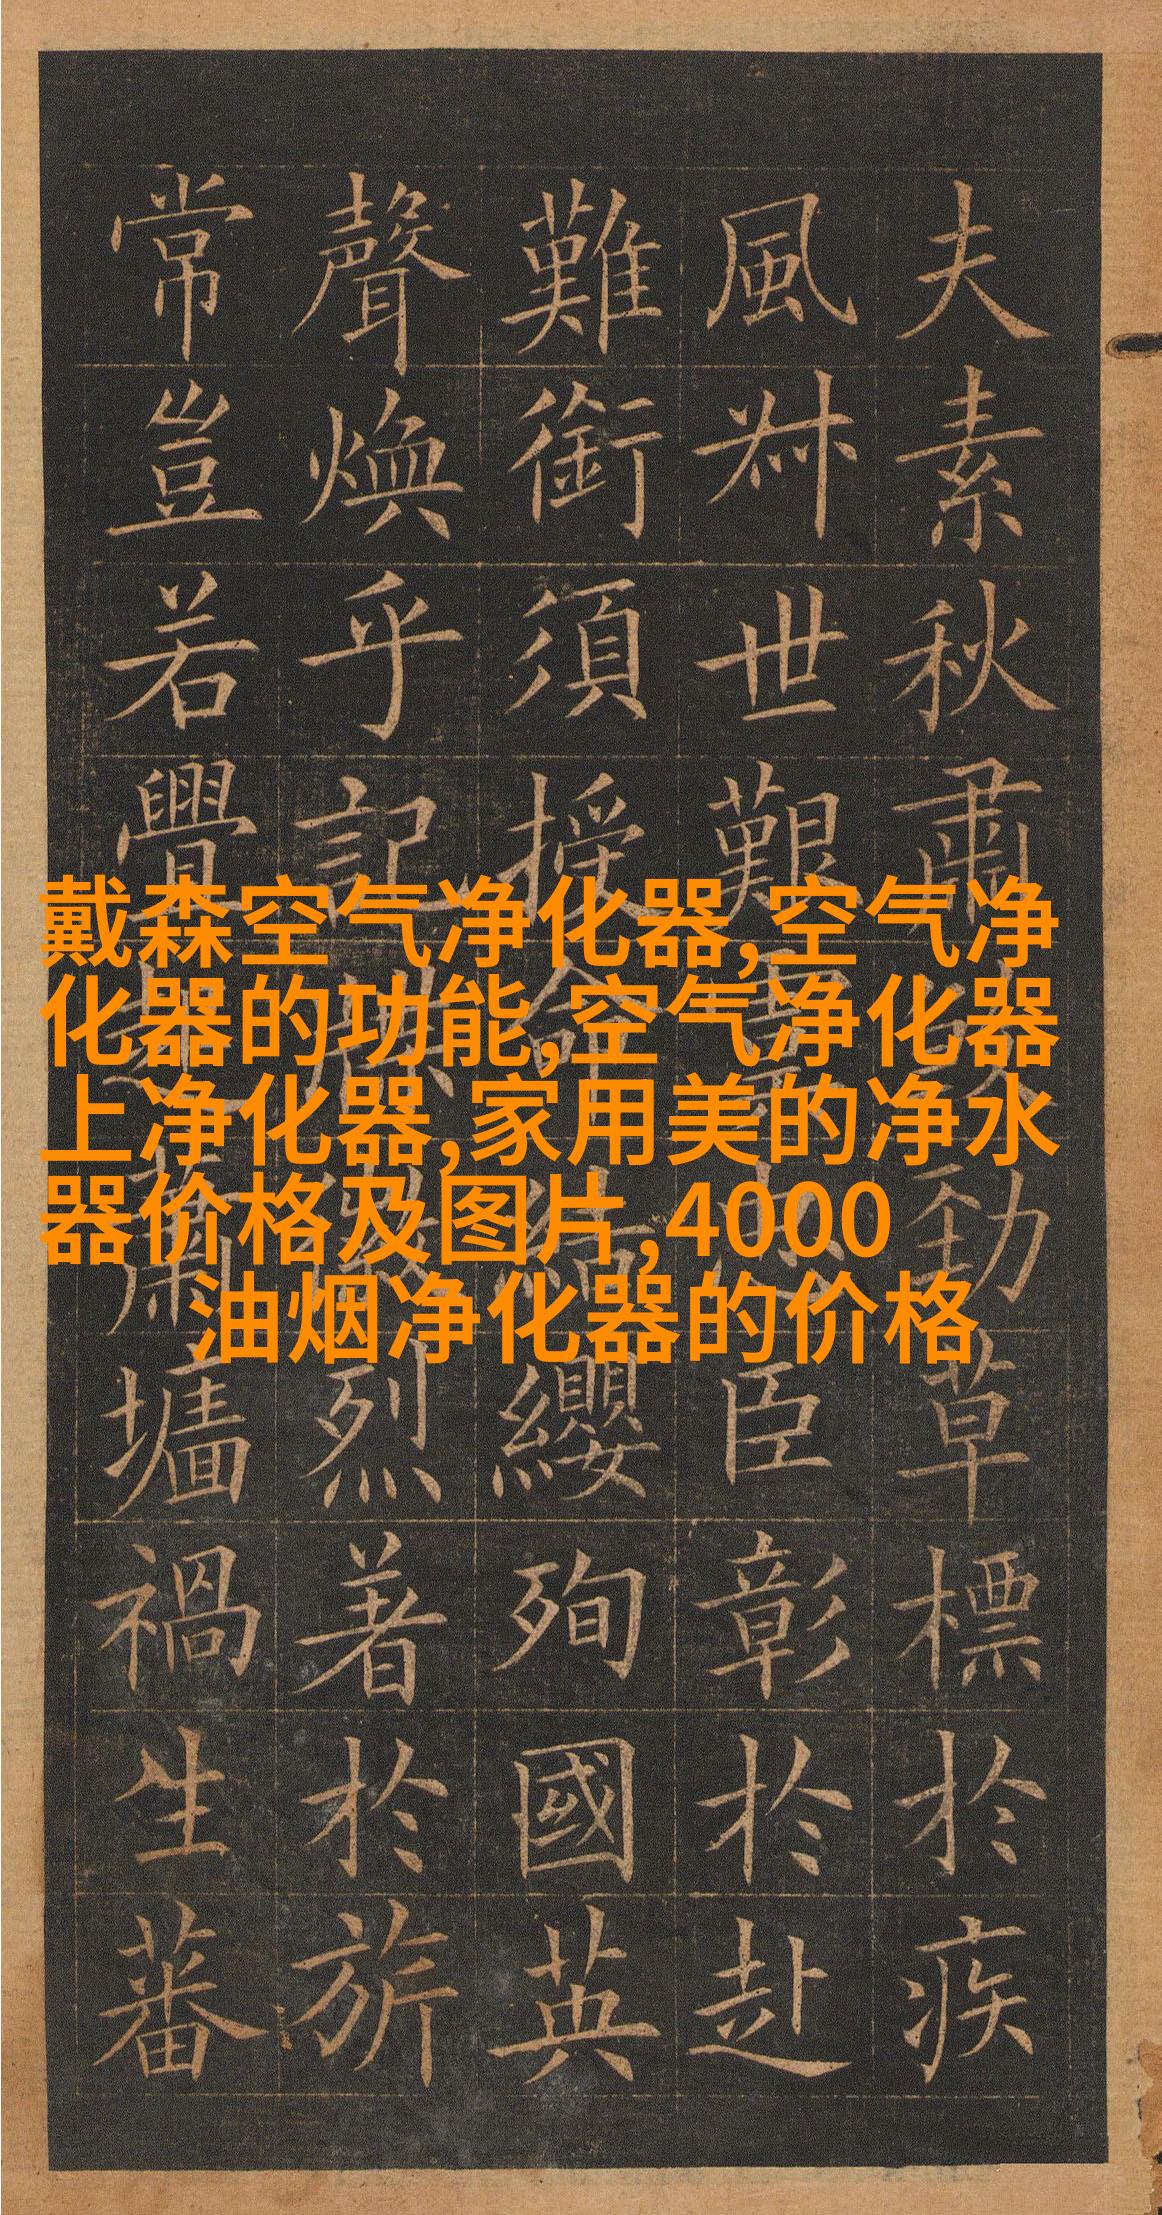 戴森空气净化器,空气净
化器的功能,空气净化器
上净化器,家用美的净水
器价格及图片,4000
油烟净化器的价格
夫素秋肅煞勁草標於疾
風叔世艱虞忠臣彰於赴
難銜須授命結纓殉國英
聲煥乎記牒徽烈著於旂
常豈若釁起蕭墻禍生蕃